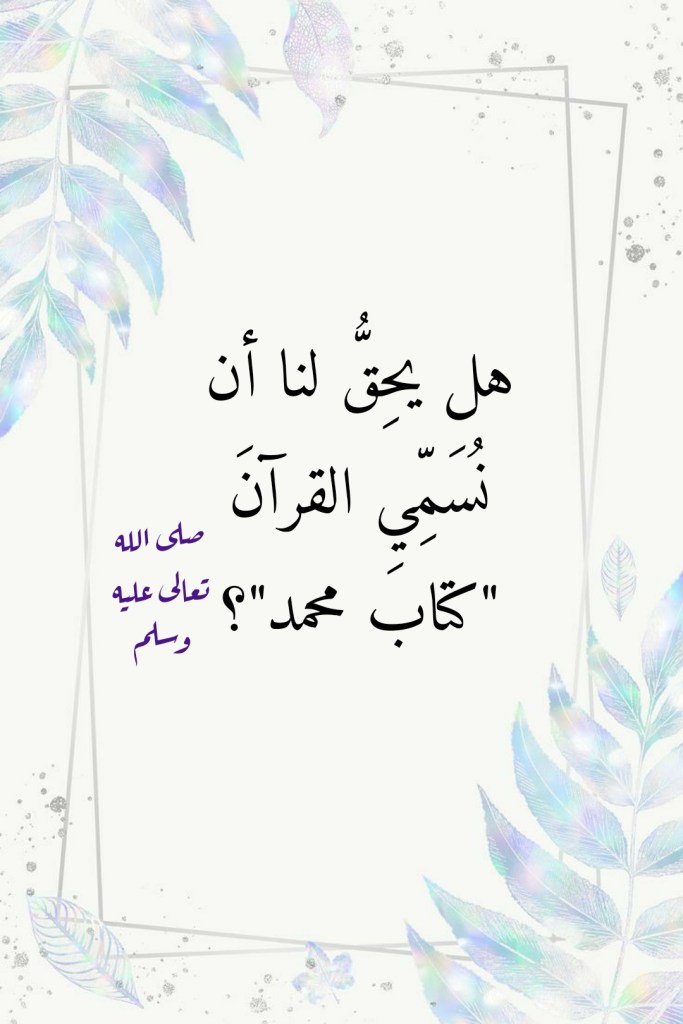 هل يحِقُّ لنا أن
نُسَمِّيِ القرآنَ
"كتابِ محمد"؟
صلى الله
تعالى عليه
وسلم